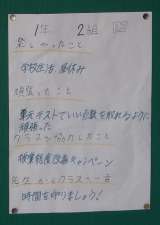 1年 2組
楽しかったこと
学校生活 昼休み
頑張ったこと
単元テストでいい点数を取れるように
頑張った
クラスで協力したこと
授業態度改善キャンペーン
先生からクラスへ一言
時間を守りましょう!